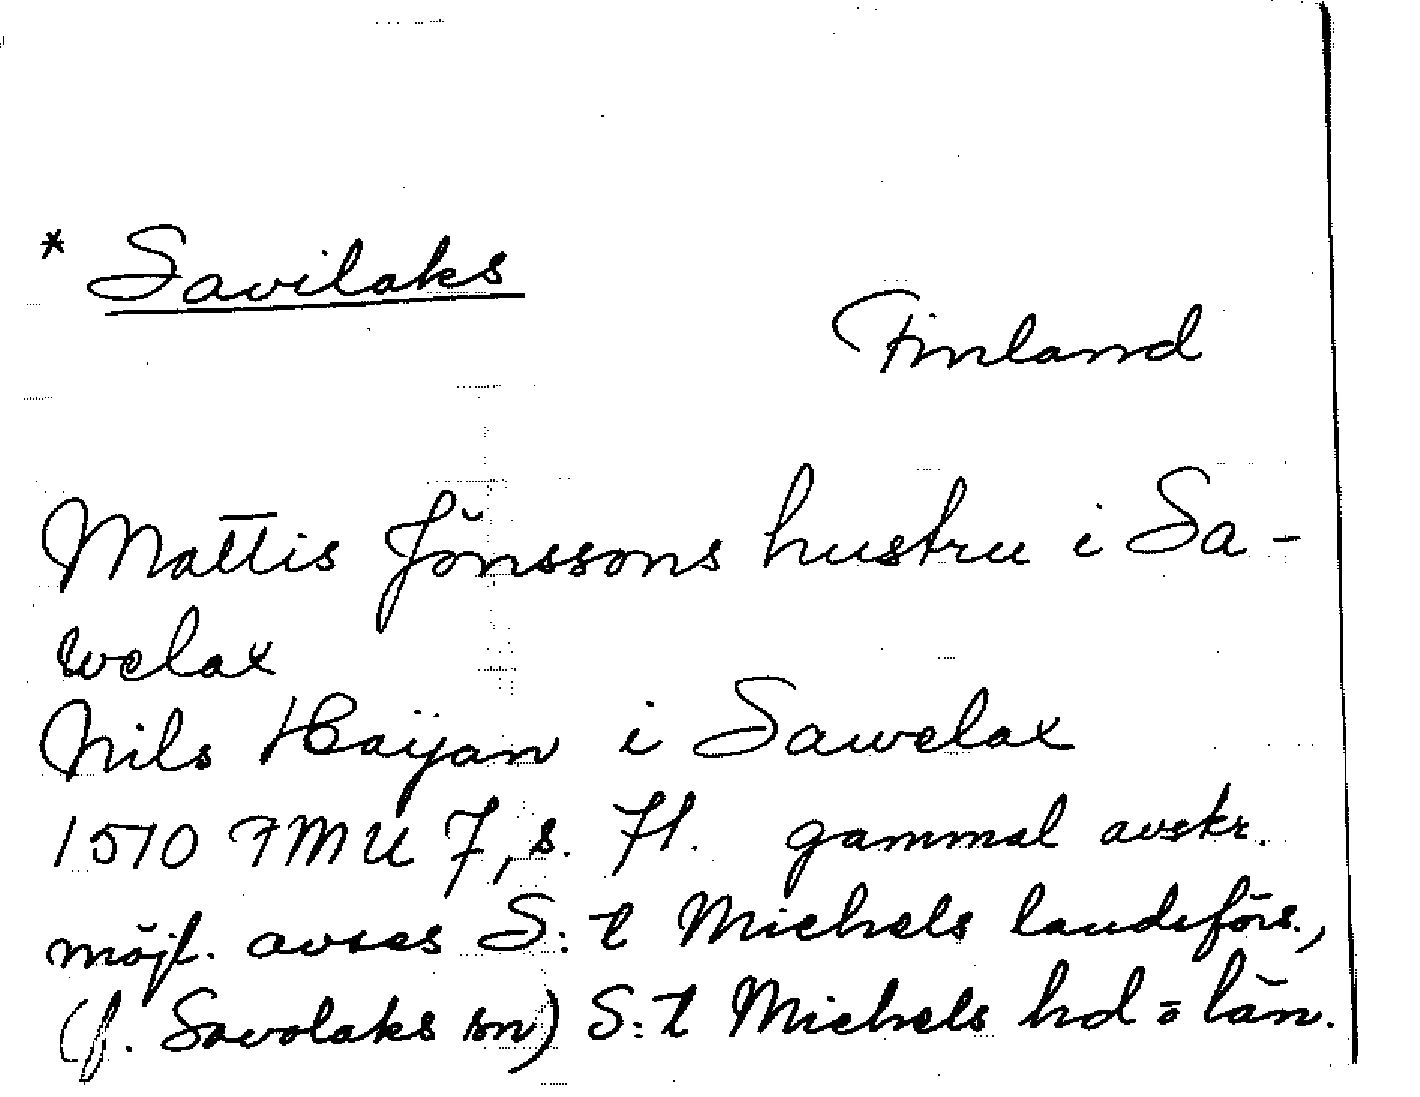 * Savilaks
Finland
Mattis Jönssons hustru i Sa-
welax
Nils Haijan i Sawelax
1570 FMU 7, s. 71. gammal avskr.
möjl. avses S:t Michels landsförs.,
(f. Savolaks sn) S:t Michels hd o län.